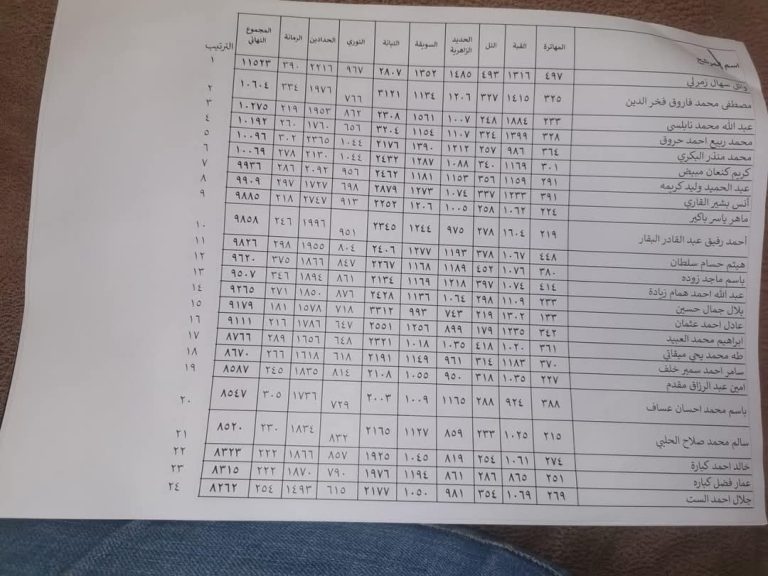 اسم المرشح المهاترة القبة التل الحديد الزاهرية السويقة التبانة النوري الحدادين الرمانة المجموع النهائي الترتيب
سهال زمرلي ٤٩٧ ١٣١٦ ٤٩٣ ١٤٨٥ ١٣٥٢ ٢٨٠٧ ٩٦٧ ٢٢١٦ ٣٩٠ ١١٥٢٣ ١
مصطفى محمد فاروق فخر الدين ٣٢٥ ١٤١٥ ٣٢٧ ١٢٠٦ ١١٣٤ ٣١٢١ ٧٦٦ ١٩٧٦ ٣٣٤ ١٠٦٠٤ ٢
عبد الله محمد نابلسي ٢٣٣ ١٨٨٤ ٢٤٨ ١٠٠٧ ١٥٦١ ٢٣٠٨ ٨٦٢ ١٩٥٣ ٢١٩ ١٠٢٧٥ ٣
محمد ربيع احمد حروق ٣٢٨ ١٣٩٩ ٣٢٤ ١١٠٧ ١١٥٤ ٣٢٠٤ ٦٥٦ ١٧٦٠ ٢٦٠ ١٠١٩٢ ٤
محمد منذر البكري ٣٦٤ ٩٨٧ ٢٥٦ ١٢١٢ ١٣٩٠ ٢١٧٦ ١٠٤٤ ٢٣٦٥ ٣٠٢ ١٠٠٩٦ ٥
كريم كنعان مبيض ٣٠١ ١١٦٩ ٣٤٠ ١٠٨٨ ١٢٨٧ ٢٤٣٢ ١٠٤٤ ٢١٣٠ ٢٧٨ ١٠٠٦٩ ٦
عبد الحميد وليد كريمه ٢٩١ ١١٥٩ ٣٥٦ ١١٥٣ ١١٨١ ٢٤٦٢ ٩٥٦ ٢٠٩٢ ٢٨٦ ٩٩٣٦ ٧
أنس بشير القاري ٣٩١ ١٢٣٣ ٣٣٧ ١٠٧٤ ١٢٧٣ ٢٨٧٩ ٦٩٨ ١٧٢٧ ٢٩٧ ٩٩٠٩ ٨
ماهر ياسر باكير ٢٢٤ ١٠٦٢ ٢٥٨ ١٠٠٥ ١٢٠٦ ٢٢٥٢ ٩١٣ ٢٧٤٧ ٢١٨ ٩٨٨٥ ٩
أحمد رفيق عبد القادر البقار ٢١٩ ١٦٠٤ ٢٧٨ ٩٧٥ ١٢٤٤ ٢٣٤٥ ٩٥١ ١٩٩٦ ٢٤٦ ٩٨٥٨ ١٠
هيثم حسام سلطان ٤٤٨ ١٠٦٧ ٣٧٨ ١١٩٣ ١٢٧٧ ٢٤٠٦ ٨٠٤ ١٩٥٥ ٢٩٨ ٩٨٢٦ ١١
باسم ماجد زوده ٣٨٠ ١٠٧٦ ٤٥٢ ١١٨٩ ١١٦٨ ٢٢٦٧ ٨٤٧ ١٨٦٦ ٣٧٥ ٩٦٢٠ ١٢
عبد الله احمد همام زيادة ٤١٤ ١٠٧٤ ٣٩٧ ١٢١٨ ١١٦٩ ٢١٣٤ ٨٦١ ١٨٩٤ ٣٤٦ ٩٥٠٧ ١٣
بلال جمال حسين ٢٣٣ ١١٠٩ ٢٩٨ ١٠٦٤ ١١٣٦ ٢٤٢٨ ٨٧٦ ١٨٥٠ ٢٧١ ٩٢٦٥ ١٤
عادل احمد عثمان ١٣٣ ١٣٠٢ ٢١٩ ٧٤٣ ٩٩٣ ٣٣١٢ ٧١٨ ١٥٧٨ ١٨١ ٩١٧٩ ١٥
ابراهيم محمد العبيد ٣٤٢ ١٢٣٥ ١٧٩ ٨٩٩ ١٢٥٦ ٢٥٥١ ٦٤٧ ١٧٨٦ ٢١٦ ٩١١١ ١٦
طه محمد يحي ميقاتي ٣٦١ ١٠٢٠ ٤١٨ ١٠٣٥ ١٠١٨ ٢٣٢١ ٦٤٨ ١٦٥٦ ٢٨٩ ٨٧٦٦ ١٧
سامر احمد سمير خلف ٣٧٠ ١١٨٣ ٣١٤ ٩٦١ ١١٤٩ ٢١٩١ ٦١٨ ١٦١٨ ٢٦٦ ٨٦٧٠ ١٨
امين عبد الرزاق مقدم ٢٢٧ ١٠٣٥ ٣١٨ ٩٥٠ ١٠٥٥ ٢١٠٨ ٨١٤ ١٨٣٥ ٢٤٥ ٨٥٨٧ ١٩
باسم محمد احسان عساف ٣٨٨ ٩٢٤ ٢٨٨ ١١٦٥ ١٠٠٩ ٢٠٠٣ ٧٢٩ ١٧٣٦ ٣٠٥ ٨٥٤٧ ٢٠
سالم محمد صلاح الحلبي ٢١٥ ١٠٢٥ ٢٣٣ ٨٥٩ ١١٢٧ ٢١٦٥ ٨٣٢ ١٨٣٤ ٢٣٠ ٨٥٢٠ ٢١
خالد احمد كبارة ٢٧٤ ١٠٦١ ٢٥٤ ٨١٩ ١٠٤٥ ١٩٢٥ ٨٥٧ ١٨٦٦ ٢٢٢ ٨٣٢٣ ٢٢
عمار فضل كباره ٢٥١ ٨٦٥ ٢٨٦ ٨٦١ ١١٩٤ ١٩٧٦ ٧٩٠ ١٨٧٠ ٢٢٢ ٨٣١٥ ٢٣
جلال احمد الست ٢٦٩ ١٠٦٩ ٣٥٤ ٩٨١ ١٠٥٠ ٢١٧٧ ٦١٥ ١٤٩٣ ٢٥٤ ٨٢٦٢ ٢٤